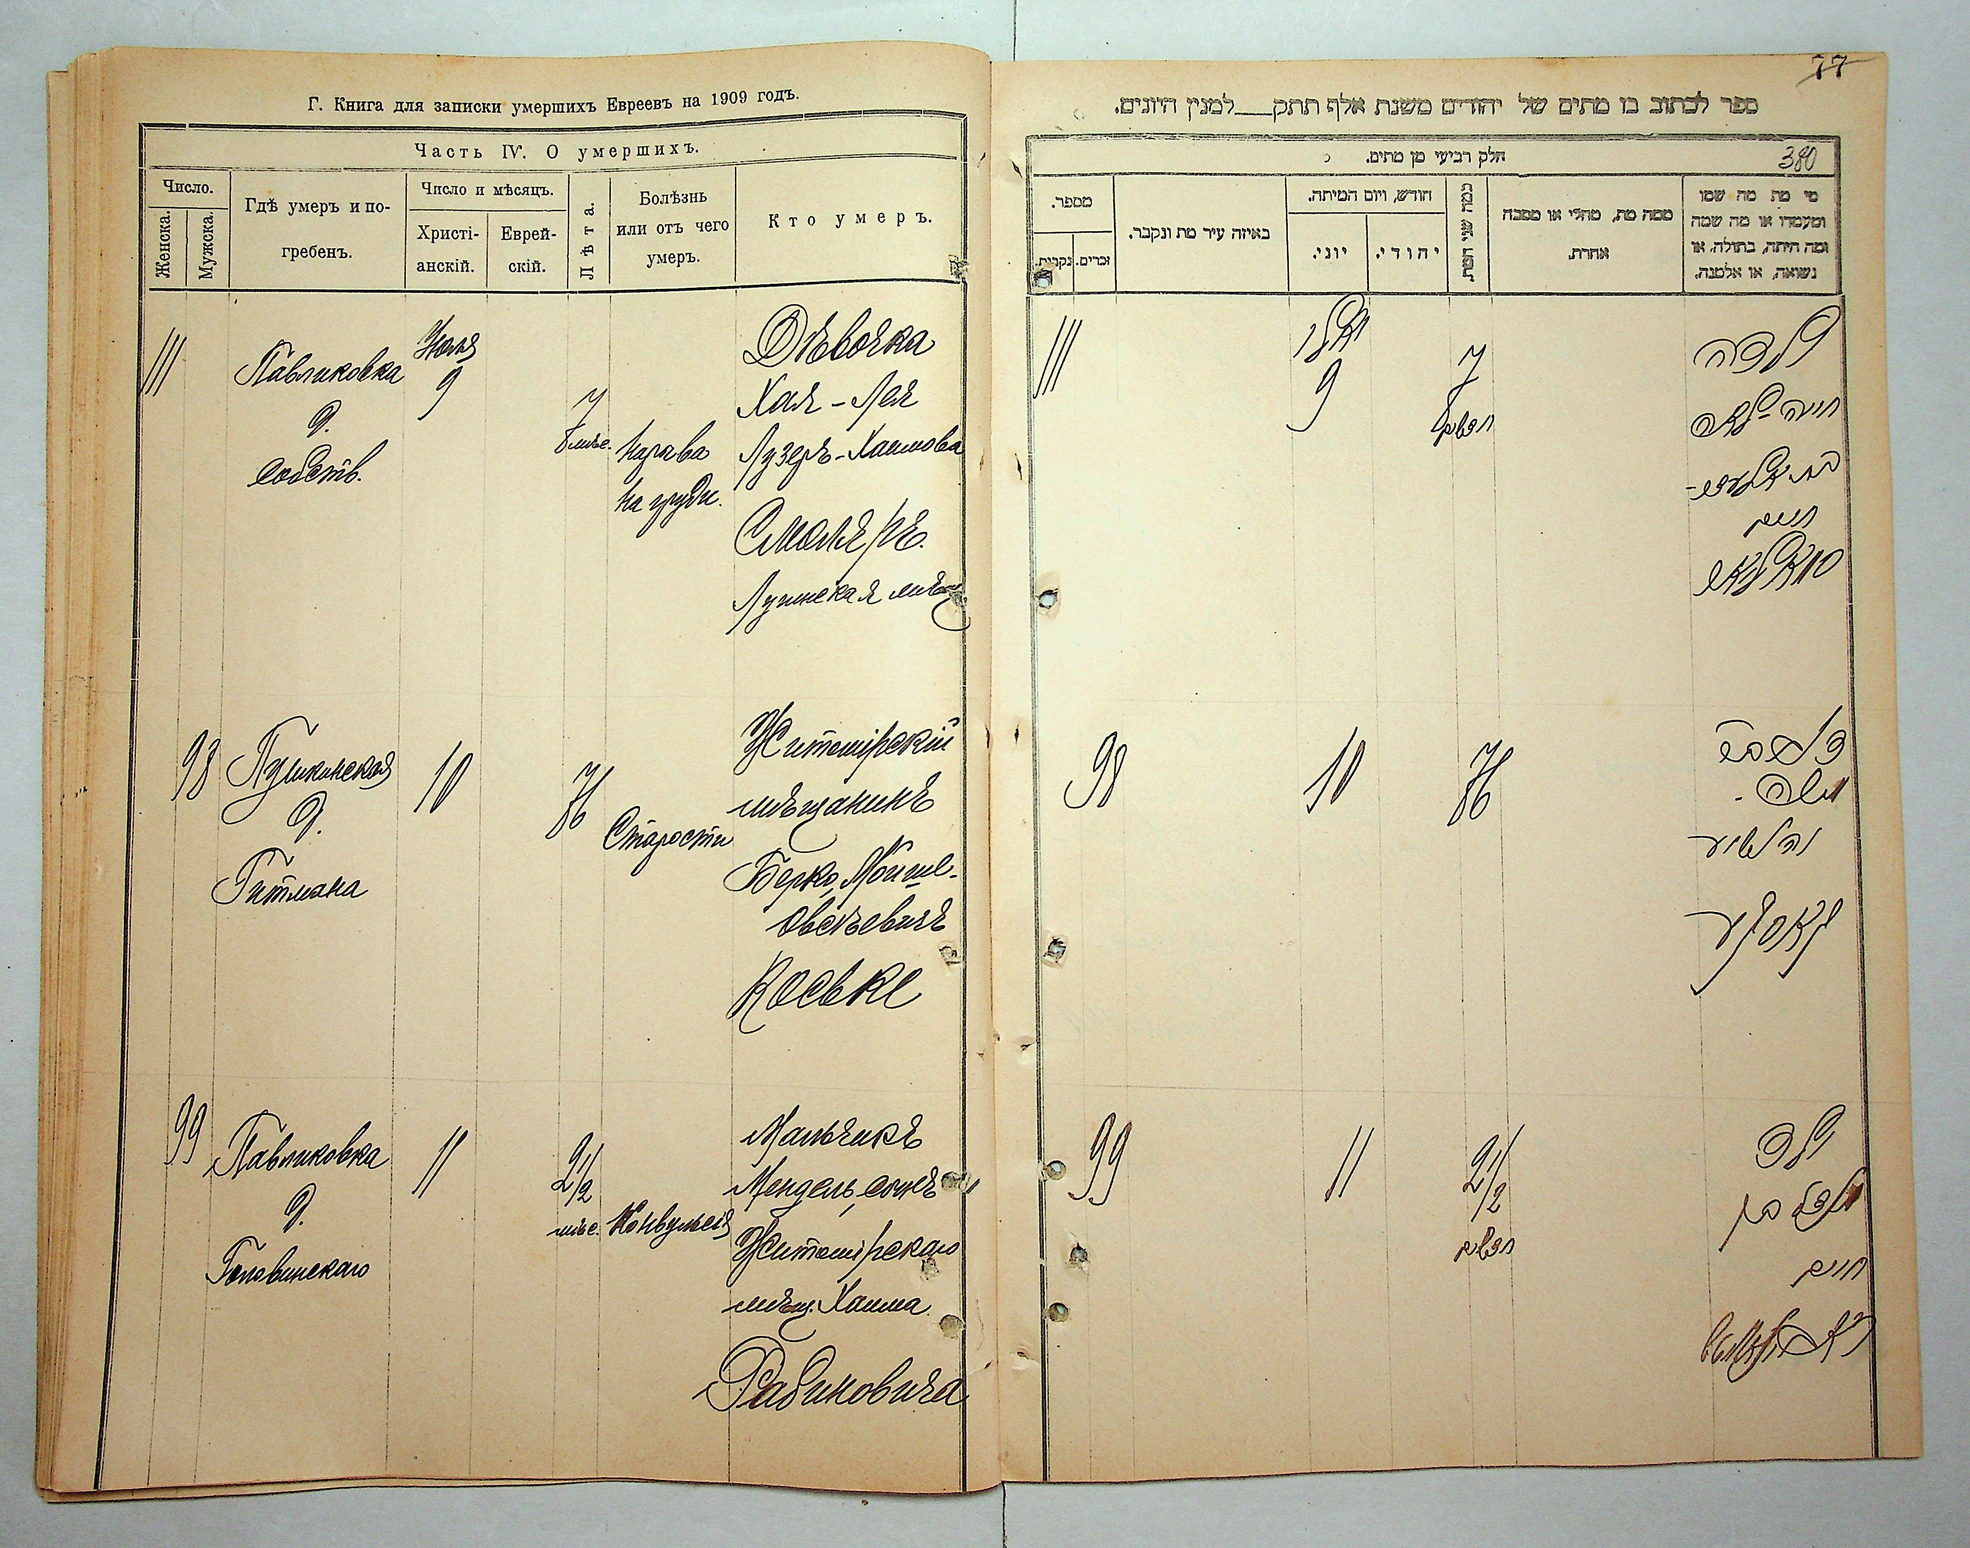 Г. Книга для записки умершихъ Евреевъ на 1909 годъ.
Часть IV. О умершихъ.
Число.
Женска.
Мужска.
Гдѣ умеръ и по-
гребенъ.
Число и мѣсяцъ.
Христі-
анскій.
Еврей-
скій.
Лѣта.
Болѣзнь
или отъ чего
умеръ.
Кто умеръ.
111
Павликовка
д.
собств.
Июля
9
7
мѣс.
на груди.
Дѣвочка
Хая-Лея
Лузеръ-Хаимова
Смоляръ.
Лугинская мѣщ
98
Пушкинская
д.
Гитмана
10
76
Старости
Житомірскій
мѣщанинъ
Берко, Мойше-
Овсѣевичъ
99
Павликовка
д.
11
2 1/2
мѣс.
Конвульсія
Мальчикъ
Мендель, сынъ
Житомірскаго
мѣщ. Хаима
Рабиновича
77
ספר לכתוב בו מתים של יהודים משנת אלף תתק___למנין היונים.
חלק רביעי מן מתים.
380
מספר.
נקבות.
זכרים.
באיזה עיר מת ונקבר.
חודש, ויום המיתה.
יוני.
יהודי.
כמה שני המת.
ממה מת, מחלי או מסבה
אחרת.
מי מת מה שמו
ומעמדו או מה שמה
ומה היתה, בתולה, או
נשואה, או אלמנה.
111
יולי
9
7
חדשים
ילדה
חיה-לאה
חיים
סמאליאר
98
10
76
משה
99
11
2 1/2
חדשים
ילד
מענדל בן
חיים
ראבינאוויטש